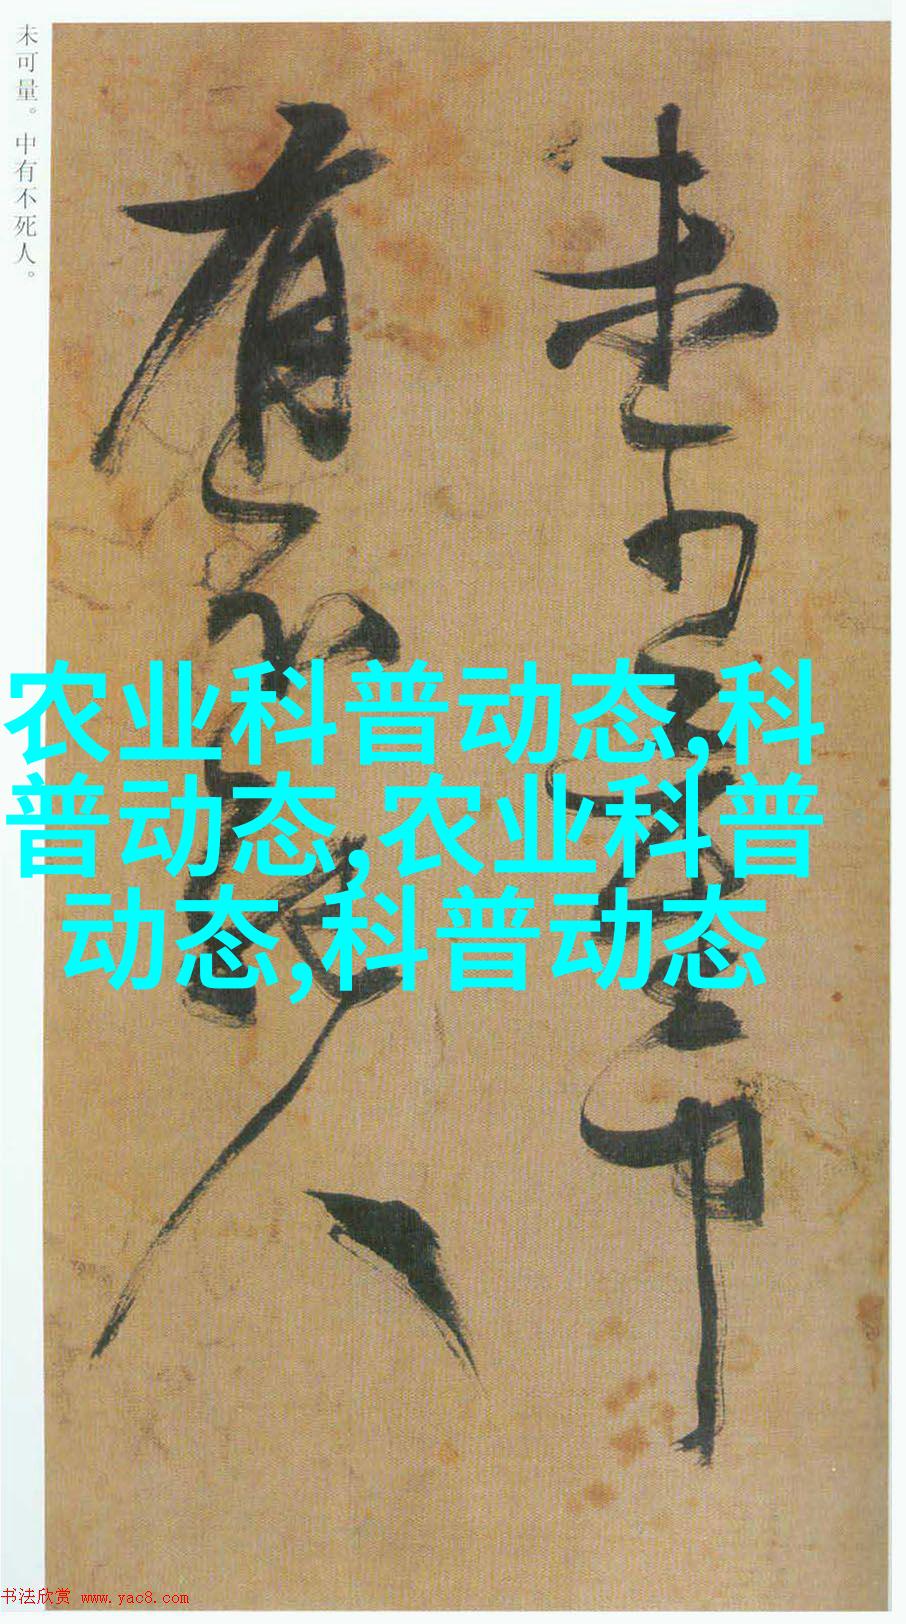 未可量。中有不死人。
未可量中
有不死人
农业科普动态,科
普动态,农业科普
动态,科普动态
书法欣赏 www.yac8.com